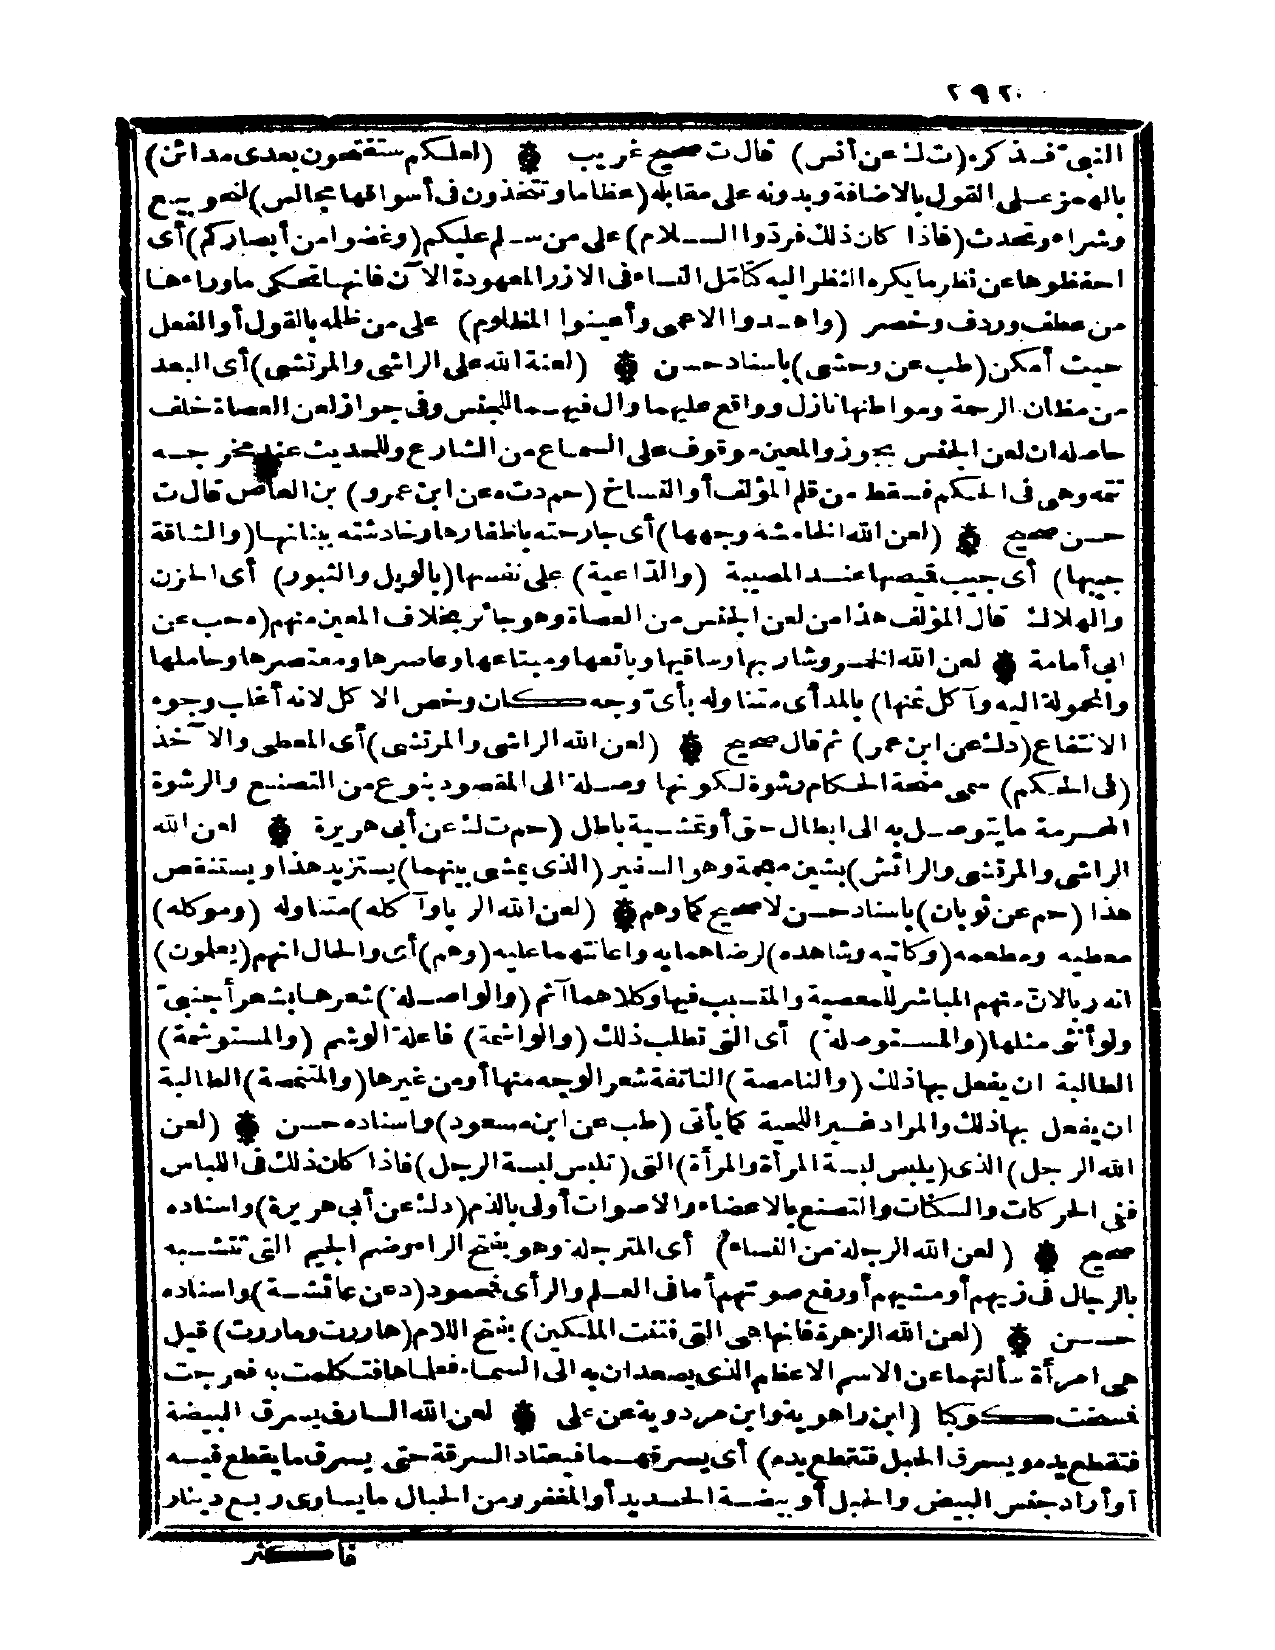 ٢٩٢
النبىّ فذكره (ت ك عن أنس) قال ت صحيح غريب (لعلكم ستفتحون بعدى مدائن)
بالهمز على القول بالاضافة وبدونه على مقابله (عظاما وتتخذون فى أسواقها مجالس) لنحو بيع
وشراء وتحدث (فاذا كان ذلك فردّوا السلام) على من سلم عليكم (وغضوا من أبصاركم) أى
احفظوها عن نظر ما يكره النظر اليه كتأمّل النساء فى الازر المعهودة الآن فانها تحكى ما وراءها
من عطف وردف وخصر (واهدوا الاعمى وأعينوا المظلوم) على من ظلمه بالقول أو الفعل
حيث أمكن (طب عن وحشى) باسناد حسن (لعنة الله على الراشى والمرتشى) أى البعد
من مظان الرحمة ومواطنها نازل وواقع عليهما وال فيهما للجنس وفى جواز لعن العصاة خلف
حاصله ان لعن الجنس يجوز والمعين موقوف على السماع من الشارع وللحديث عند مخرجه
تتمه وهى فى الحكم فسقط من قلم المؤلف أو النساخ (حم د ت ه عن ابن عمرو) بن العاص قال ت
حسن صحيح (لعن الله الخامشة وجهها) أى جارحته باظفارها وخادشته ببنانها (والشاقة
جيبها) أى جيب قيصها عند المصيبة (والدّاعية) على نفسها (بالويل والثبور) أى الحزن
والهلاك قال المؤلف هذا من لعن الجنس من العصاة وهو جائز بخلاف المعين منهم (ه حب عن
ابى أمامة لعن الله الخمر وشاربها وساقيها وبائعها ومبتاعها وعاصرها ومعتصرها وحاملها
والمحمولة اليه وآكل ثمنها) بالمد أى متناوله بأىّ وجه كان وخص الاكل لانه أغلب وجوه
الانتفاع (د ك عن ابن عمر) ثم قال صحيح (لعن الله الراشى والمرتشى) أى المعطى والآخذ
(فى الحكم) سمى منحة الحكام رشوة لكونها وصلة الى المقصود بنوع من التصنيع والرشوة
المحرمة ما يتوصل به الى ابطال حق أو تمشية باطل (حم ت ك عن أبى هريرة لعن الله
الراشى والمرتشى والرائش) بشين معجمة وهو السفير (الذى يمشى بينهما) يستزيد هذا ويستنقص
هذا (حم عن ثوبان) باسناد حسن لا صحيح كما وهم (لعن الله الربا وآكله) متناوله (وموكله)
معطيه ومطعمه (وكاتبه وشاهده) لرضاهما به واعانتهما عليه (وهم) أى والحال انهم (يعلمون)
انه ربا لان منهم المباشر للمعصية والمتسبب فيها وكلاهما آثم (والواصلة) شعرها بشعر أجنبىّ
ولو أنثى مثلها (والمستوصلة) أى التى تطلب ذلك (والواشمة) فاعلة الوشم (والمستوشمة)
الطالبة ان يفعل بها ذلك (والنامصة) الناتفة شعر الوجه منها أو من غيرها (والمتنمصة) الطالبة
ان يفعل بها ذلك والمراد غير اللحية كما يأتى (طب عن ابن مسعود) واسناده حسن (لعن
الله الرجل) الذى (يلبس لبسة المرأة والمرأة) التى (تلبس لبسة الرجل) فاذا كان ذلك فى اللباس
ففى الحركات والسكنات والتصنع بالاعضاء والاصوات أولى بالذم (د ك عن أبى هريرة) واسناده
صحيح (لعن الله الرجلة من النساء) أى المترجلة وهو بفتح الراء وضم الجيم التى تتشبه
بالرجال فى زيهم أو مشيهم أو رفع صوتهم أما فى العلم والرأى فمحمود (د عن عائشة) واسناده
حسن (لعن الله الزهرة فانها هى التى فتنت الملكين) بفتح اللام (هاروت وماروت) قيل
هى امرأة سألتهما عن الاسم الاعظم الذى يصعدان به الى السماء فعلماها فتكلمت به فعرجت
فمسخت كوكبا (ابن راهوية وابن مردوية عن على لعن الله السارق يسرق البيضة
فتقطع يده ويسرق الحبل فتقطع يده) أى يسرقهما فيعتاد السرقة حتى يسرق ما يقطع فيه
أو أراد جنس البيض والحبل أو بيضة الحديد أو المغفر ومن الحبال ما يساوى ربع دينار
فاكثر